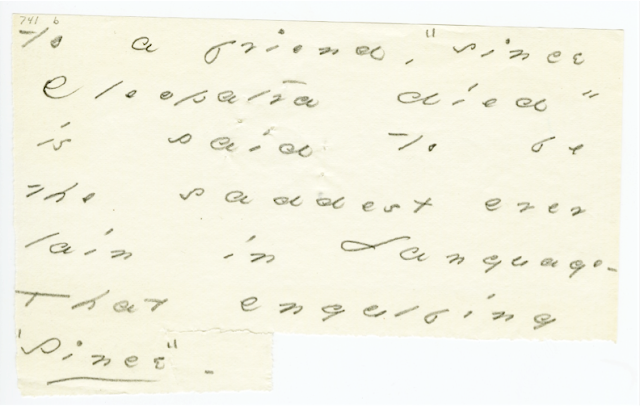 741 b
To a friend, "Since
Cleopatra died"
is said to be
the saddest ever
lain in Language -
That engulfing
"Since" -